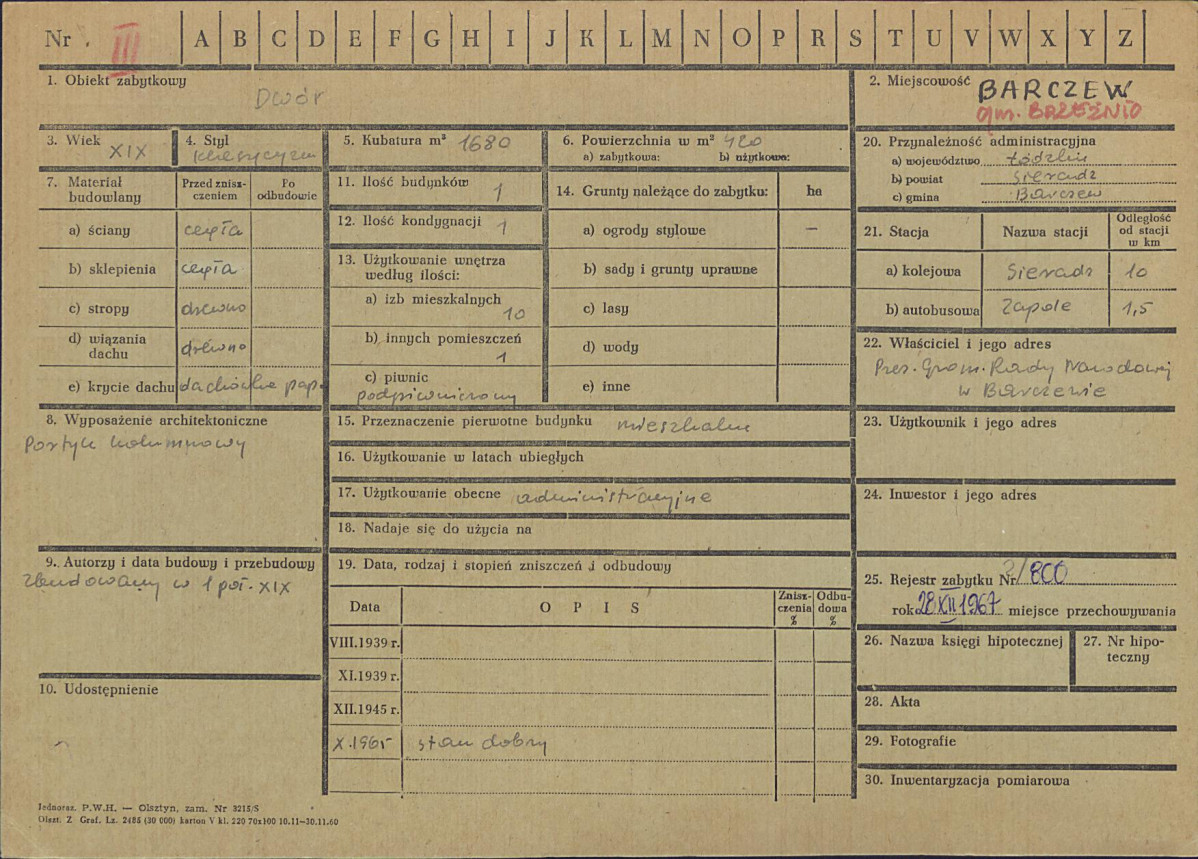 Nr. III A B C D E F G H I J K L M N O P R S T U V W X Y Z
1. Obiekt zabytkowy
Dwór
2. Miejscowość BARCZEW
gm. BRZEŹNIO
3. Wiek
XIX
4. Styl
klasycyzm
5. Kubatura m³ 1680
6. Powierzchnia w m² 420
a) zabytkowa: b) użytkowa:
20. Przynależność administracyjna
a) województwo Łódzkie
b) powiat Sieradz
c) gmina Barczew
7. Materiał
budowlany
Przed znisz-
czeniem
Po
odbudowie
a) ściany cegła
b) sklepienia cegła
c) stropy drewno
d) wiązania
dachu drewno
e) krycie dachu dachówka pap.
8. Wyposażenie architektoniczne
Portyk kolumnowy
9. Autorzy i data budowy i przebudowy
Zbudowany w 1 poł. XIX
10. Udostępnienie
11. Ilość budynków
1
12. Ilość kondygnacji 1
13. Użytkowanie wnętrza
według ilości:
a) izb mieszkalnych
10
b) innych pomieszczeń
1
c) piwnic
podpiwniczony
14. Grunty należące do zabytku: ha
a) ogrody stylowe —
b) sady i grunty uprawne
c) lasy
d) wody
e) inne
15. Przeznaczenie pierwotne budynku mieszkalne
16. Użytkowanie w latach ubiegłych
17. Użytkowanie obecne administracyjne
18. Nadaje się do użycia na
19. Data, rodzaj i stopień zniszczeń i odbudowy
Data
O P I S
Znisz-
czenia
%
Odbu-
dowa
%
VIII.1939 r.
XI.1939 r.
XII.1945 r.
X.1965 stan dobry
21. Stacja
Nazwa stacji
Odległość
od stacji
w km
a) kolejowa Sieradz 10
b) autobusowa Zapole 1,5
22. Właściciel i jego adres
Prez. Grom. Rady Narodowej
w Barczewie
23. Użytkownik i jego adres
24. Inwestor i jego adres
25. Rejestr zabytku Nr /800
rok 28 XII 1967 miejsce przechowywania
26. Nazwa księgi hipotecznej
27. Nr hipo-
teczny
28. Akta
29. Fotografie
30. Inwentaryzacja pomiarowa
Jednoraz. P.W.H. — Olsztyn, zam. Nr 3215/S
Olszt. Z Graf. Lz. 2485 (30 000) karton V kl. 220 70x100 10.11—30.11.60